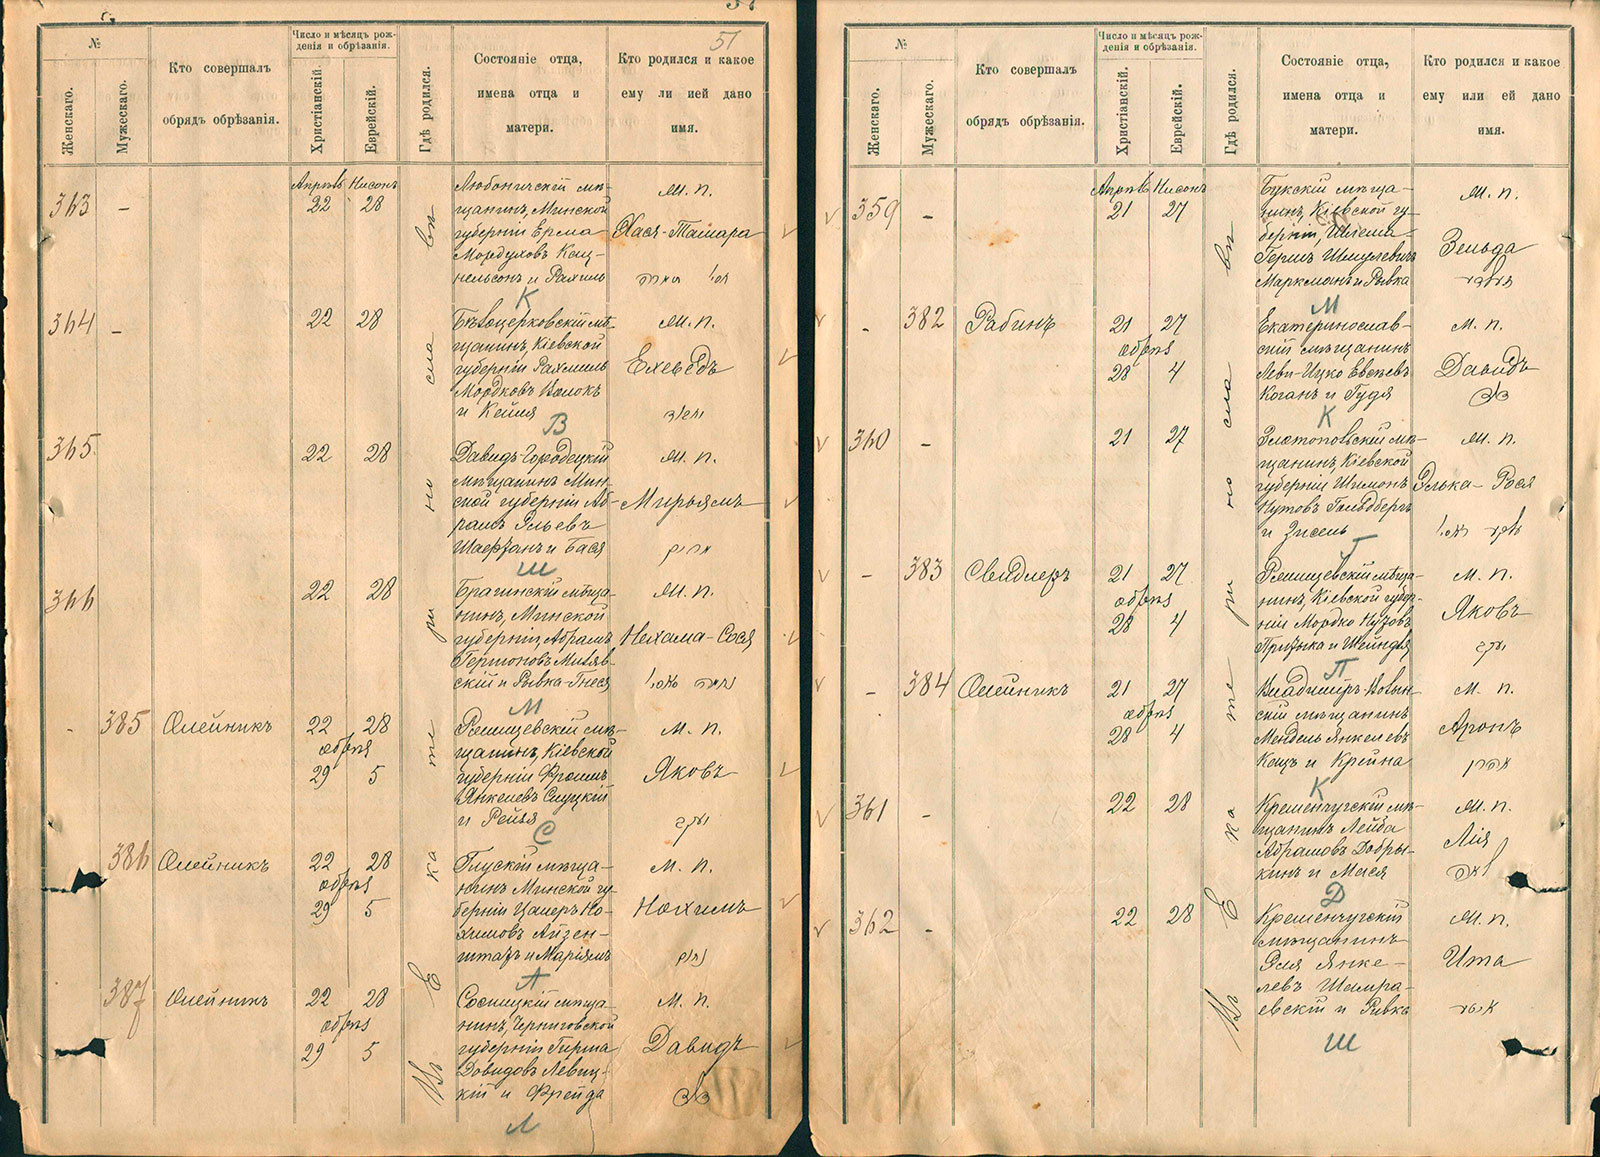 51
№
Женскаго.
Мужескаго.
Кто совершалъ
обрядъ обрѣзанія.
Число и мѣсяцъ рож-
денія и обрѣзанія.
Христіанскій.
Еврейскій.
Гдѣ родился.
Состояніе отца,
имена отца и
матери.
Кто родился и какое
ему ли ией дано
имя.
Въ Екатеринославѣ
363
-
Апрѣль Нисонъ
22 28
Любоничскій мѣ-
щанинъ, Минской
губерніи Ерма
Мордуховъ Кац-
нельсонъ и Рахиль
К
м. п.
Хася-Тамара
364
-
22 28
Бѣлоцерковскій мѣ-
щанинъ, Кіевской
губерніи Рахмиль
Мордковъ Волокъ
и Кейля
В
м. п.
Ехевѣдъ
365
22 28
Давидъ-Городецкій
мѣщанинъ Мин-
ской губерніи Аб-
рамъ Эльевъ
и Бася
Ш
м. п.
Мирьямъ
מרים
366
22 28
Брагинскій мѣща-
нинъ, Минской
губерніи, Абрамъ
скій и Рывка-Гнеся
М
м. п.
Нехама-Сося
-
385
Олейникъ
22 28
обрѣз
29 5
Ржищевскій мѣ-
щанинъ, Кіевской
губерніи Фроимъ
Янкелевъ Слуцкій
и Рейзя
С
м. п.
Яковъ
יעקב
386
Олейникъ
22 28
обрѣз
29 5
Глускій мѣща-
нинъ Минской гу-
берніи Цалеръ Но-
химовъ Айзен-
штатъ и Маріямъ
А
м. п.
Нохимъ
נחום
387
Олейникъ
22 28
обрѣз
29 5
Сосницкій мѣща-
нинъ, Черниговской
губерніи Гирша
Довидовъ Левиц-
кій и Фрейда
Л
м. п.
Давидъ
דוד
№
Женскаго.
Мужескаго.
Кто совершалъ
обрядъ обрѣзанія.
Число и мѣсяцъ рож-
денія и обрѣзанія.
Христіанскій.
Еврейскій.
Гдѣ родился.
Состояніе отца,
имена отца и
матери.
Кто родился и какое
ему или ей дано
имя.
Въ Екатеринославѣ
359
-
Апрѣль Нисонъ
21 27
Букскій мѣща-
нинъ, Кіевской гу-
берніи, Шлема-
Гершъ Шмулевичъ
Маркманъ и Рывка
М
м. п.
Зельда
-
382
Рабинъ
21 27
обрѣз
28 4
Екатеринослав-
скій мѣщанинъ
Леви-Ицко Евсѣевъ
Коганъ и Гудя
К
м. п.
Давидъ
דוד
360
-
21 27
Златопольскій мѣ-
щанинъ, Кіевской
губерніи Шимонъ
Нутовъ Гольдбергъ
и Зисель
Г
м. п.
Элька-Рося
-
383
Свидлеръ
21 27
обрѣз
28 4
Ржищевскій мѣща-
нинъ, Кіевской губер-
ніи Мордко Нузовъ
Призыка и Шейндля
П
м. п.
Яковъ
יעקב
-
384
Олейникъ
21 27
обрѣз
28 4
Владимиръ-Волын-
скій мѣщанинъ
Мендель Янкелевъ
Кацъ и Крейна
К
м. п.
Аронъ
אהרן
361
-
22 28
Кременчугскій мѣ-
щанинъ Лейба
Абрамовъ Добры-
кинъ и Мася
Д
м. п.
Лія
לאה
362
-
22 28
Кременчугскій
мѣщанинъ
Эля Янке-
левъ Шамра-
евскій и Ривка
Ш
м. п.
Ита